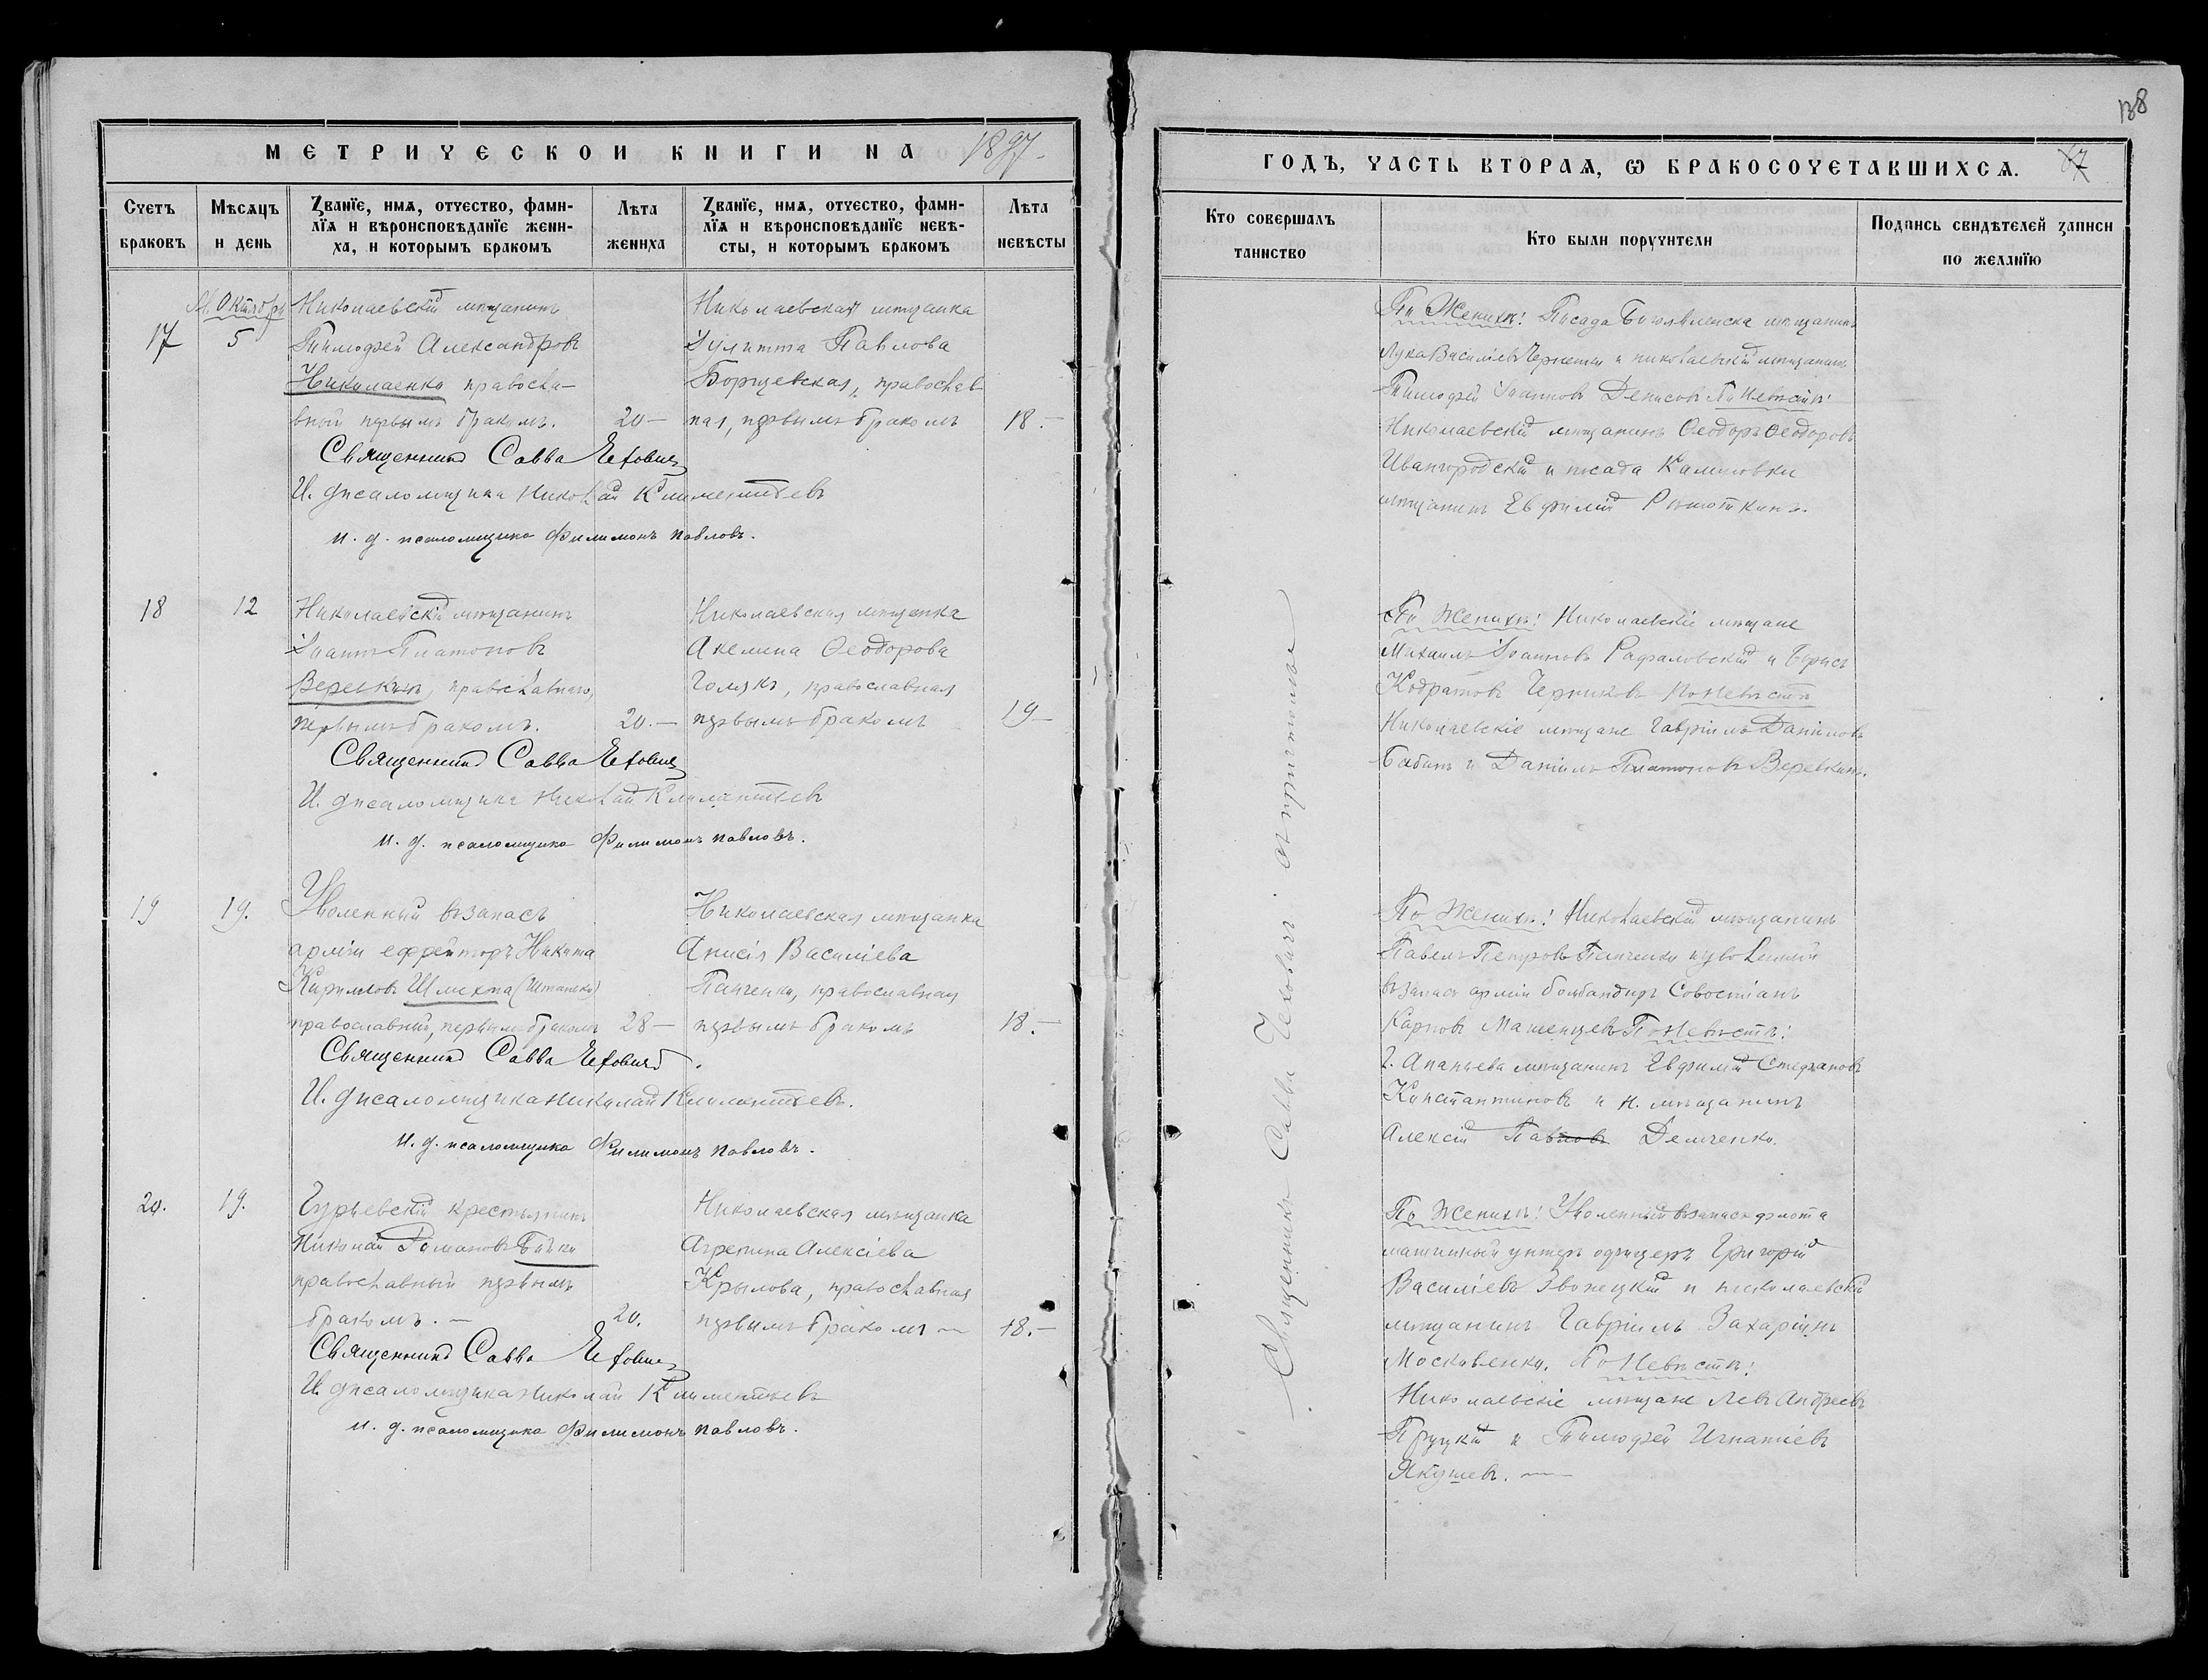 МЕТРИЧЕСКОЙ КНИГИ НА 1897
Счетъ браковъ
Мѣсяцъ и день
Званїе, имѧ, отчество, фамилїѧ и вѣроисповѣданїе жениха, и которымъ бракомъ
Лѣта жениха
Званїе, имѧ, отчество, фамилїѧ и вѣроисповѣданїе невѣсты, и которымъ бракомъ
Лѣта невѣсты
17
М. Октябрь
5
Николаевскій мѣщанинъ
Тимофей Александровъ
Николаенко правосла-
вный первымъ бракомъ.
20 —
Николаевская мѣщанка
Іулитта Павлова
Борщевская, православ
ная, первымъ бракомъ
18. —
Священникъ Савва Чехович
И. д псаломщика Николай Климентьевъ
и. д. псаломщика Филимонъ Павловъ.
18
12
Николаевскій мѣщанинъ
Іоаннъ Платоновъ
Веревкинъ, православнаго,
первымъ бракомъ.
20. —
Николаевская мѣщанка
Акелина Ѳеодорова
Голякъ, православная
первымъ бракомъ
19 —
Священникъ Савва Чехович
И. д псаломщика Николай Климентьевъ
и. д. псаломщика Филимонъ Павловъ.
19
19.
Уволенный въ запасъ
арміи ефрейторъ Никита
Кирилловъ Шляхта
православный, первымъ бракомъ
28 —
Николаевская мѣщанка
Анисія Василіева
Панченко, православная
первымъ бракомъ
18. —
Священникъ Савва Чехович
И. д псаломщика Николай Климентьевъ.
и. д. псаломщика Филимонъ Павловъ.
20.
19.
Гурьевскій крестьянинъ
Николай Романовъ Бойко
православный первымъ
бракомъ. —
20.
Николаевская мѣщанка
Агрепина Алексіева
Крылова, православная
первымъ бракомъ —
18. —
Священникъ Савва Чехович
И. д псаломщика Николай Климентьевъ
и. д. псаломщика Филимонъ Павловъ.
138
ГОДЪ, ЧАСТЬ ВТОРАѦ, Ѡ БРАКОСОЧЕТАВШИХСѦ.
Кто совершалъ таинство
Кто были поручители
Подпись свидѣтелей записи по желанїю
Священникъ Савва Чеховичъ съ причтомъ
По Женихѣ: Посада Богоявленска мѣщанинъ
Лука Василіевъ и николаевскій мѣщанинъ
Тимофей Іоанновъ Денисовъ По Невѣстѣ:
Николаевскій мѣщанинъ Ѳеодоръ Ѳеодоровъ
Ивангородскій и посада Калиновки
мѣщанинъ Евфимій
По Женихѣ: Николаевскіе мѣщане
Михаилъ Іоанновъ Рафаловскій и Борисъ
Кодратовъ Черниковъ По Невѣстѣ
Николаевскіе мѣщане Гавріилъ Даніиловъ
Бабанъ и Даніилъ Платоновъ Веревкинъ.
По Женихѣ: Николаевскій мѣщанинъ
Павелъ Петровъ Панченко и уволенный
въ запасъ арміи бомбандиръ Совостіанъ
Карповъ По Невѣстѣ:
г. Ананьева мѣщанинъ Евфимій Стефановъ
Константиновъ и н. мѣщанинъ
Алексій Павловъ Демченко.
По Женихѣ: Уволенный въ запасъ флота
машинный унтеръ офицеръ Григорій
Василіевъ Звонецкій и николаевскій
мѣщанинъ Гавріилъ Захаріинъ
Московенко. По Невѣстѣ:
Николаевскіе мѣщане Левъ Андреевъ
Пруцкій и Тимофей Игнатіевъ
Якушевъ. —